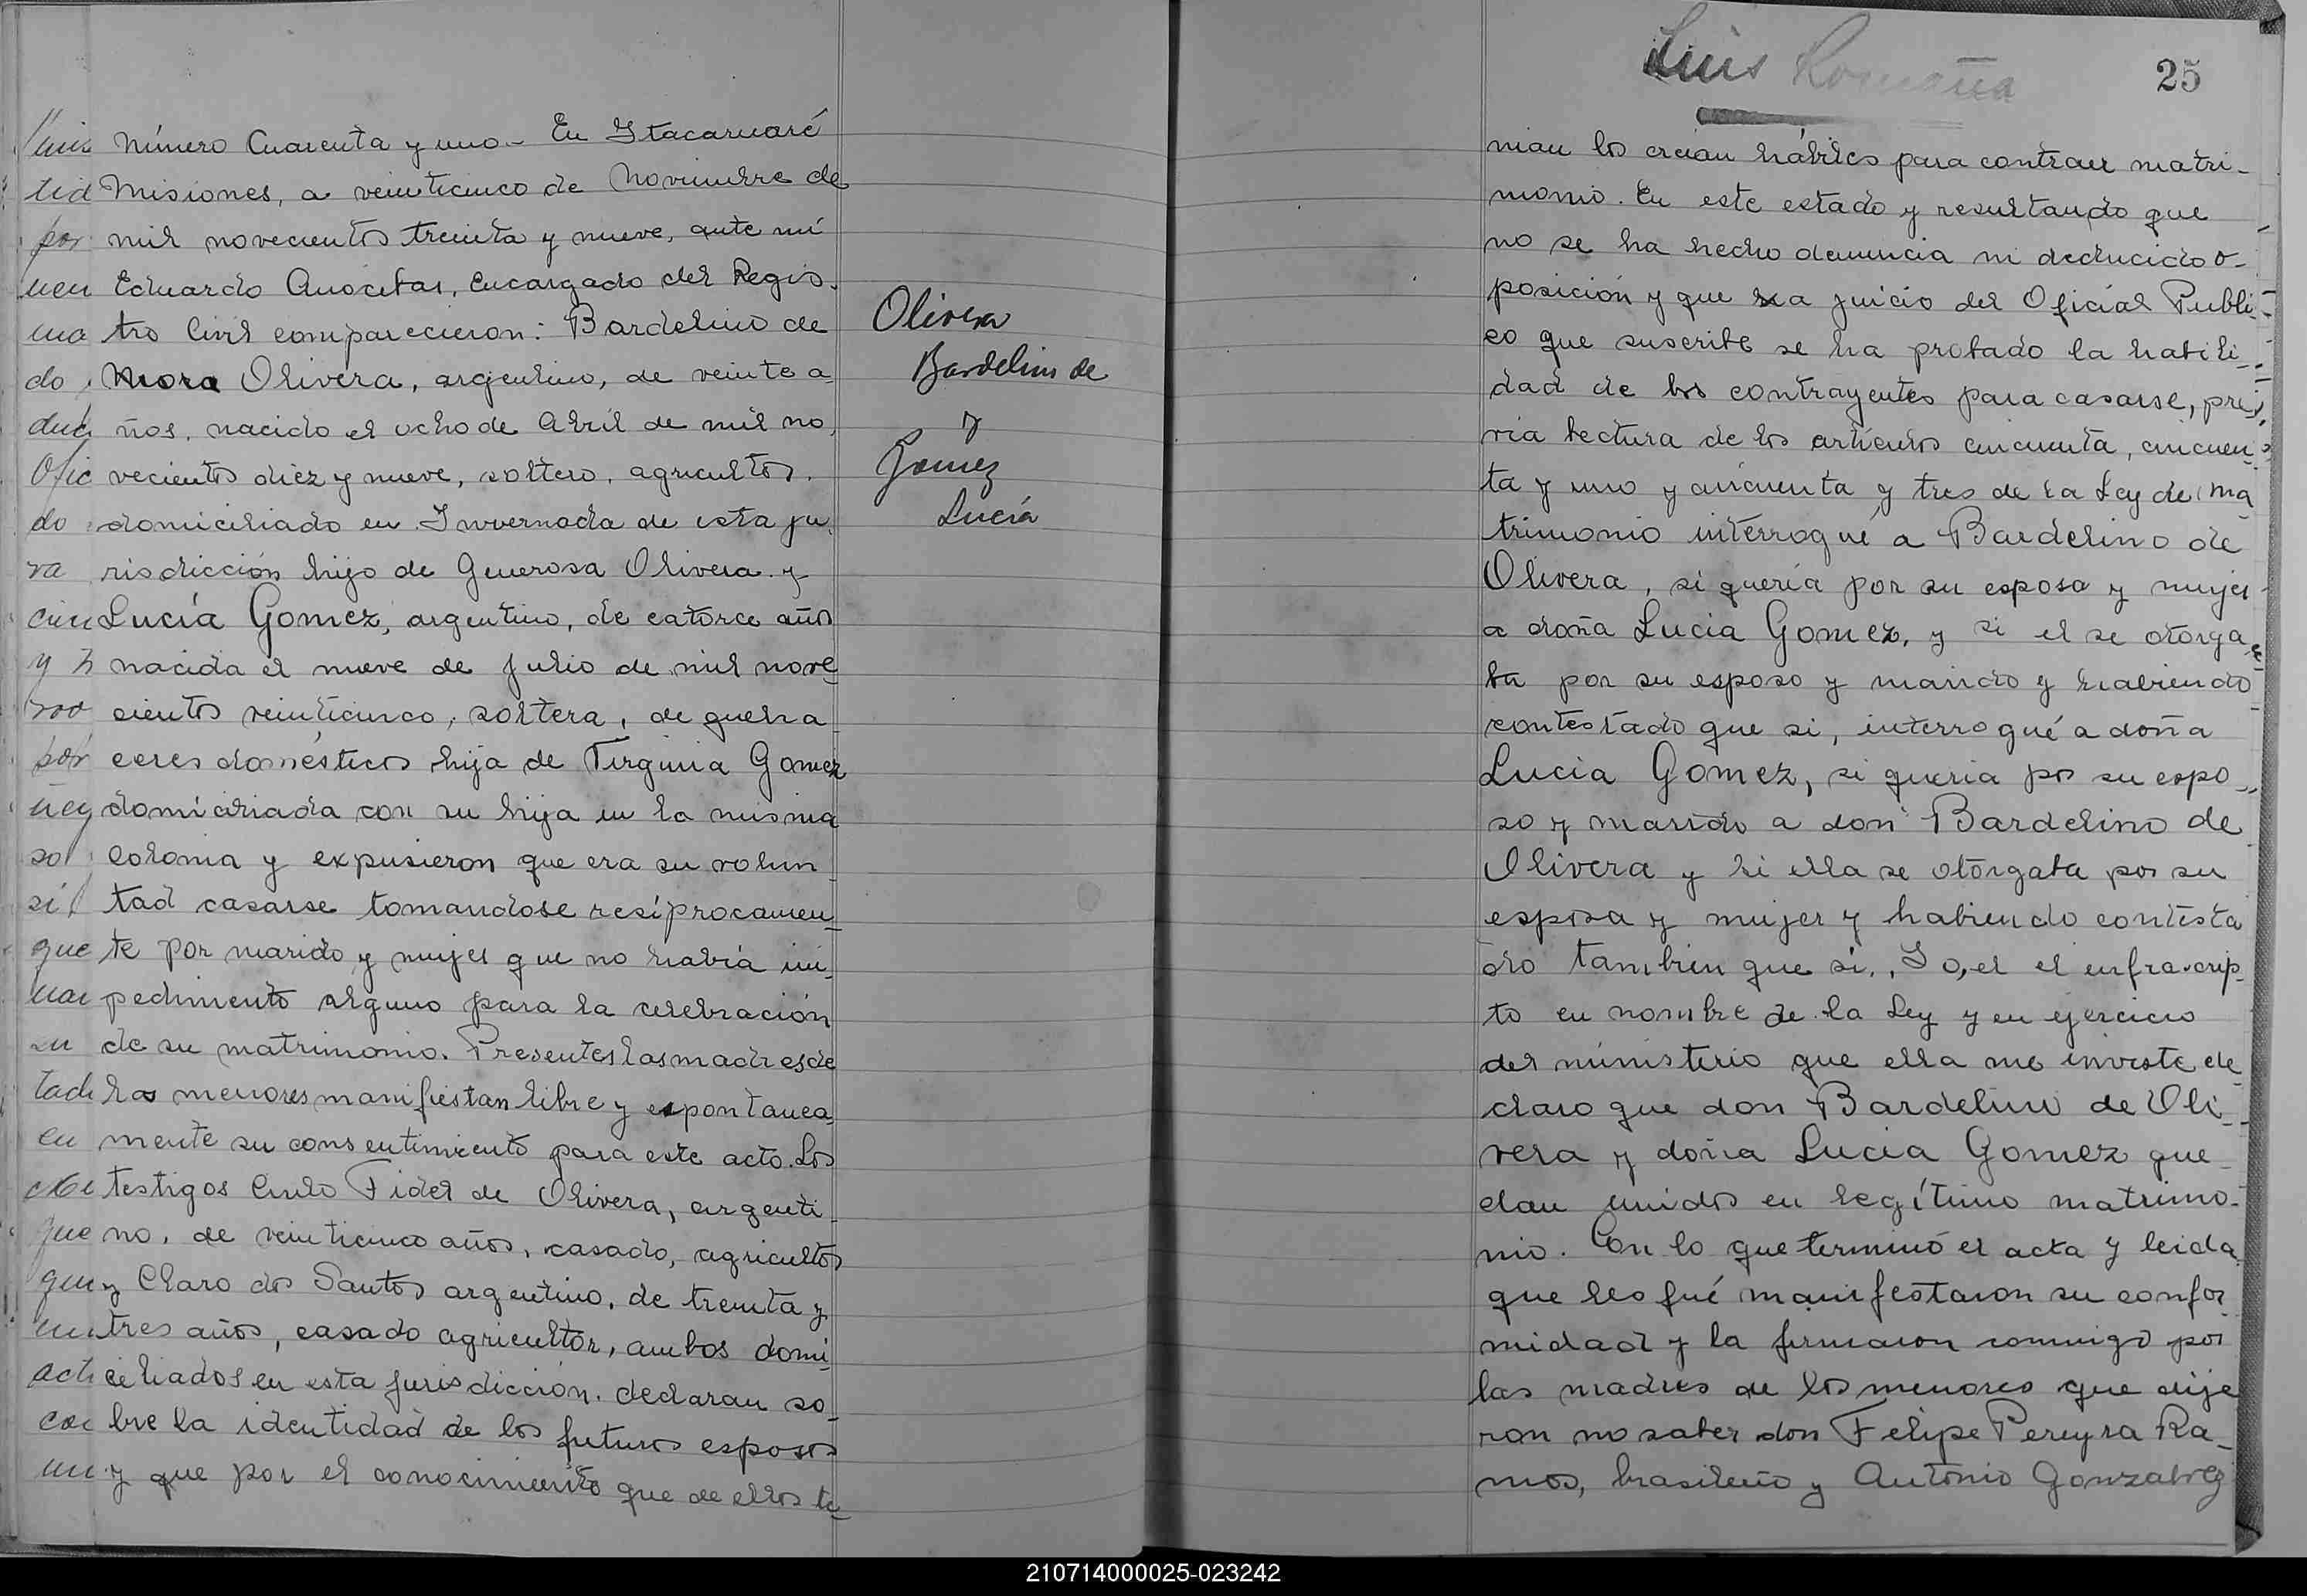 Número Cuarenta y uno - En Itacaruaré
Misiones, a veinticinco de Noviembre de
mil novecientos treinta y nueve, ante mí
Eduardo Anocibar, Encargado del Regis-
tro Civil comparecieron: Bardelino de
Mora Olivera, argentino, de veinte a-
ños, nacido el ocho de Abril de mil no-
vecientos diez y nueve, soltero, agricultor,
domiciliado en Invernada de esta ju-
risdicción hijo de Generosa Olivera y
Lucía Gomez, argentino, de catorce años
nacida el nueve de Julio de mil nove-
cientos veinticinco, soltera, de queha
ceres domésticos hija de Tirginia Gomez
domiciliada con su hija en la misma
colonia y expusieron que era su volun
tad casarse tomandose resíprocamen-
te por marido y mujer que no había im-
pedimento alguno para la celebración
de su matrimonio. Presentes las madres de
los menores manifiestan libre y espontanea-
mente su consentimiento para este acto. Los
testigos Fidel de Olivera, argenti-
no, de veinticinco años, casado, agricultor
y Claro dos Santos argentino, de treinta y
tres años, casado agricultor, ambos domi-
ciliados en esta jurisdicción. declaran so-
bre la identidad de los futuros esposos
y que por el conocimiento que de ellos te-
Olivera
Bardelino de
y
Gomez
Lucía
Luis Romaña
25
nian los creian hábiles para contraer matri-
monio. En este estado y resultando que
no se ha hecho denuncia ni deducido o-
posición y que a juicio del Oficial Públi-
co que suscribe se ha probado la habili-
dad de los contrayentes para casarse, pre-
via lectura de los artículos cincuenta, cincuen-
ta y uno y cincuenta y tres de la Ley de Ma
trimonio interrogué a Bardelino de
Olivera, si quería por su esposa y mujer
a doña Lucia Gomez, y si el se otorga-
ba por su esposo y marido y habiendo
contestado que si, interrogué a doña
Lucia Gomez, si queria por su espo-
so y marido a don Bardelino de
Olivera y si ella se otorgaba por su
esposa y mujer y habiendo contesta
do tambien que si, Yo, el el infrascrip-
to en nombre de la Ley y en ejercicio
del ministerio que ella me inviste de
claro que don Bardelino de Oli-
vera y doña Lucia Gomez que-
dan unidos en legítimo matrimo-
nio. Con lo que terminó el acta y leida
que les fué manifestaron su confor
midad y la firmaron conmigo por
las madres de los menores que dije
ron no saber don Felipe Pereyra Ra-
mos, brasileño y Antonio Gonzalvez
210714000025-023242